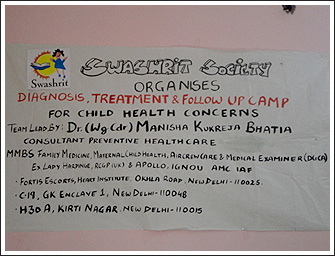 Swashrit
SWASHRIT SOCIETY
ORGANISES
DIAGNOSIS, TREATMENT & FOLLOW UP CAMP
FOR CHILD HEALTH CONCERNS
TEAM LEAD BY: DR. (Wg Cdr) MANISHA KUKREJA BHATIA
CONSULTANT PREVENTIVE HEALTHCARE
MMBS FAMILY MEDICINE, MATERNAL CHILD HEALTH, AIRCREW CARE & MEDICAL EXAMINER (DGCA)
EX LADY HARDINGE, RCGP (UK) & APOLLO, IGNOU AMC IAF
• FORTIS ESCORTS, HEART INSTITUTE. OKHLA ROAD. NEW DELHI-110025.
• C-19, GK ENCLAVE 1, NEW DELHI-110048
• H30 A, KIRTI NAGAR, NEW DELHI-110015